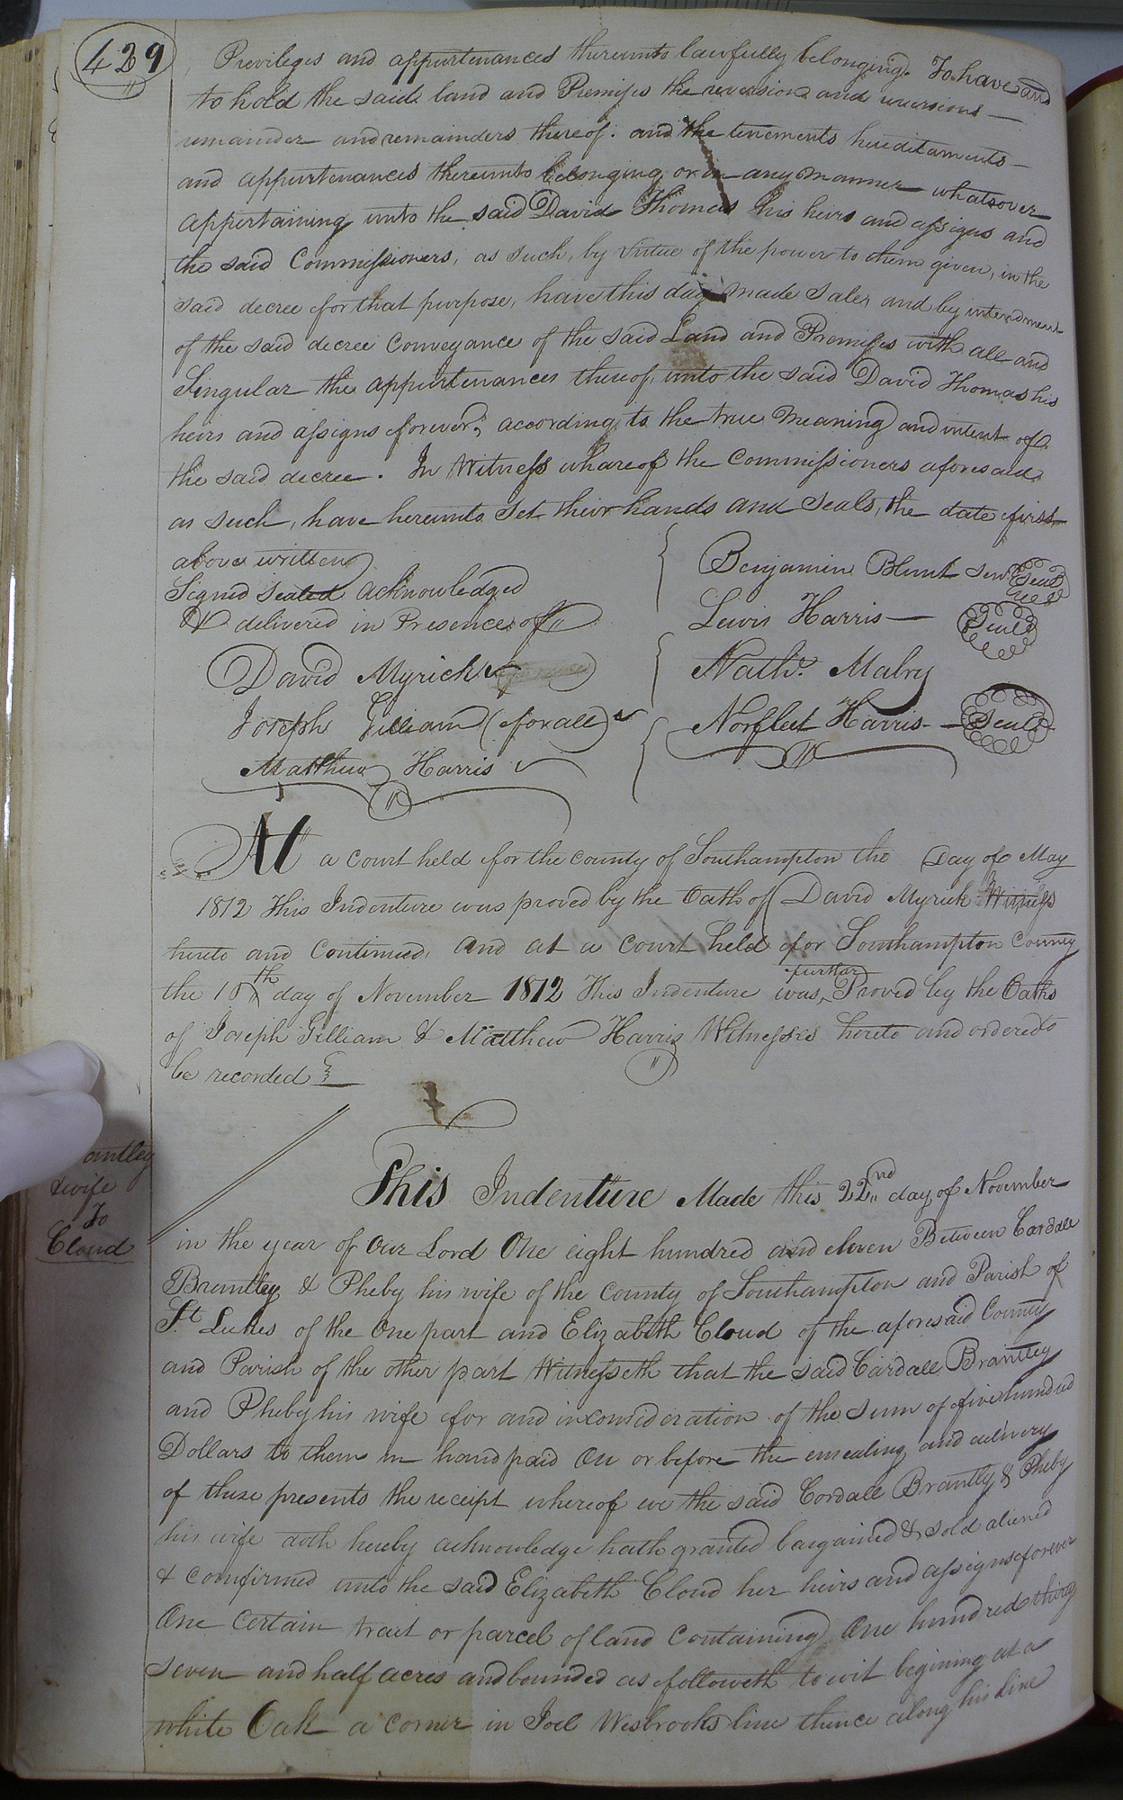 429
Privileges and appurtenances thereunto lawfully belonging. To have and
to hold the said land and Premises the reversion and reversions —
remainder and remainders thereof. and the tenements hereditaments —
and appurtenances thereunto belonging or in any manner whatsover
appertaining unto the said David Thomas his heirs and assigns and
the said Commissioners, as such, by virtue of the power to them given, in the
said decree for that purpose, have this day made sale, and by intendment
of the said decree Conveyance of the said Land and Premises with all and
Singular the appurtenances thereof, unto the said David Thomas his
heirs and assigns forever, according to the true meaning and intent of
the said decree. In Witness whareof the Commissioners aforesaid
as such, have hereunto Set their hands and Seals, the date first
above written
Signed Sealed acknowledged
& delivered in Presence of
David Myrick
Joseph Gilliam (for all)
Matthew Harris
Benjamin Blunt Senr. Seal
Lewis Harris — Seal
Nathl. Mabry
Norfleet Harris — Seal
At a Court held for the County of Southampton the Day of May
1812 This Indenture was proved by the Oath of David Myrick Witness
hereto and Continued, and at a Court held for Southampton County
the 16th day of November 1812 This Indenture was further Proved by the Oaths
of Joseph Gilliam & Matthew Harris Witnesses hereto and ordered to
be recorded
antley
& wife
To
Cloud
This Indenture Made this 22nd day of November
in the year of Our Lord One eight hundred and eleven Between Cordall
Brantley & Pheby his wife of the County of Southampton and Parish of
St. Lukes of the One part and Elizabeth Cloud of the aforesaid County
and Parish of the other part Witnesseth that the said Cardall Brantley
and Pheby his wife for and in consideration of the sum of five hundred
Dollars to them in hand paid On or before the ensealing and delivery
of these presents the receipt whereof we the said Cordall Brantly & Pheby
his wife doth hereby acknowledge hath granted bargained & sold aliened
& confirmed unto the said Elizabeth Cloud her heirs and assigns forever
One certain tract or parcel of land Containing One hundred thirty
seven and half acres and bounded as followeth to wit begining at a
white Oak a corner in Joel Wesbrooks line thence along his line